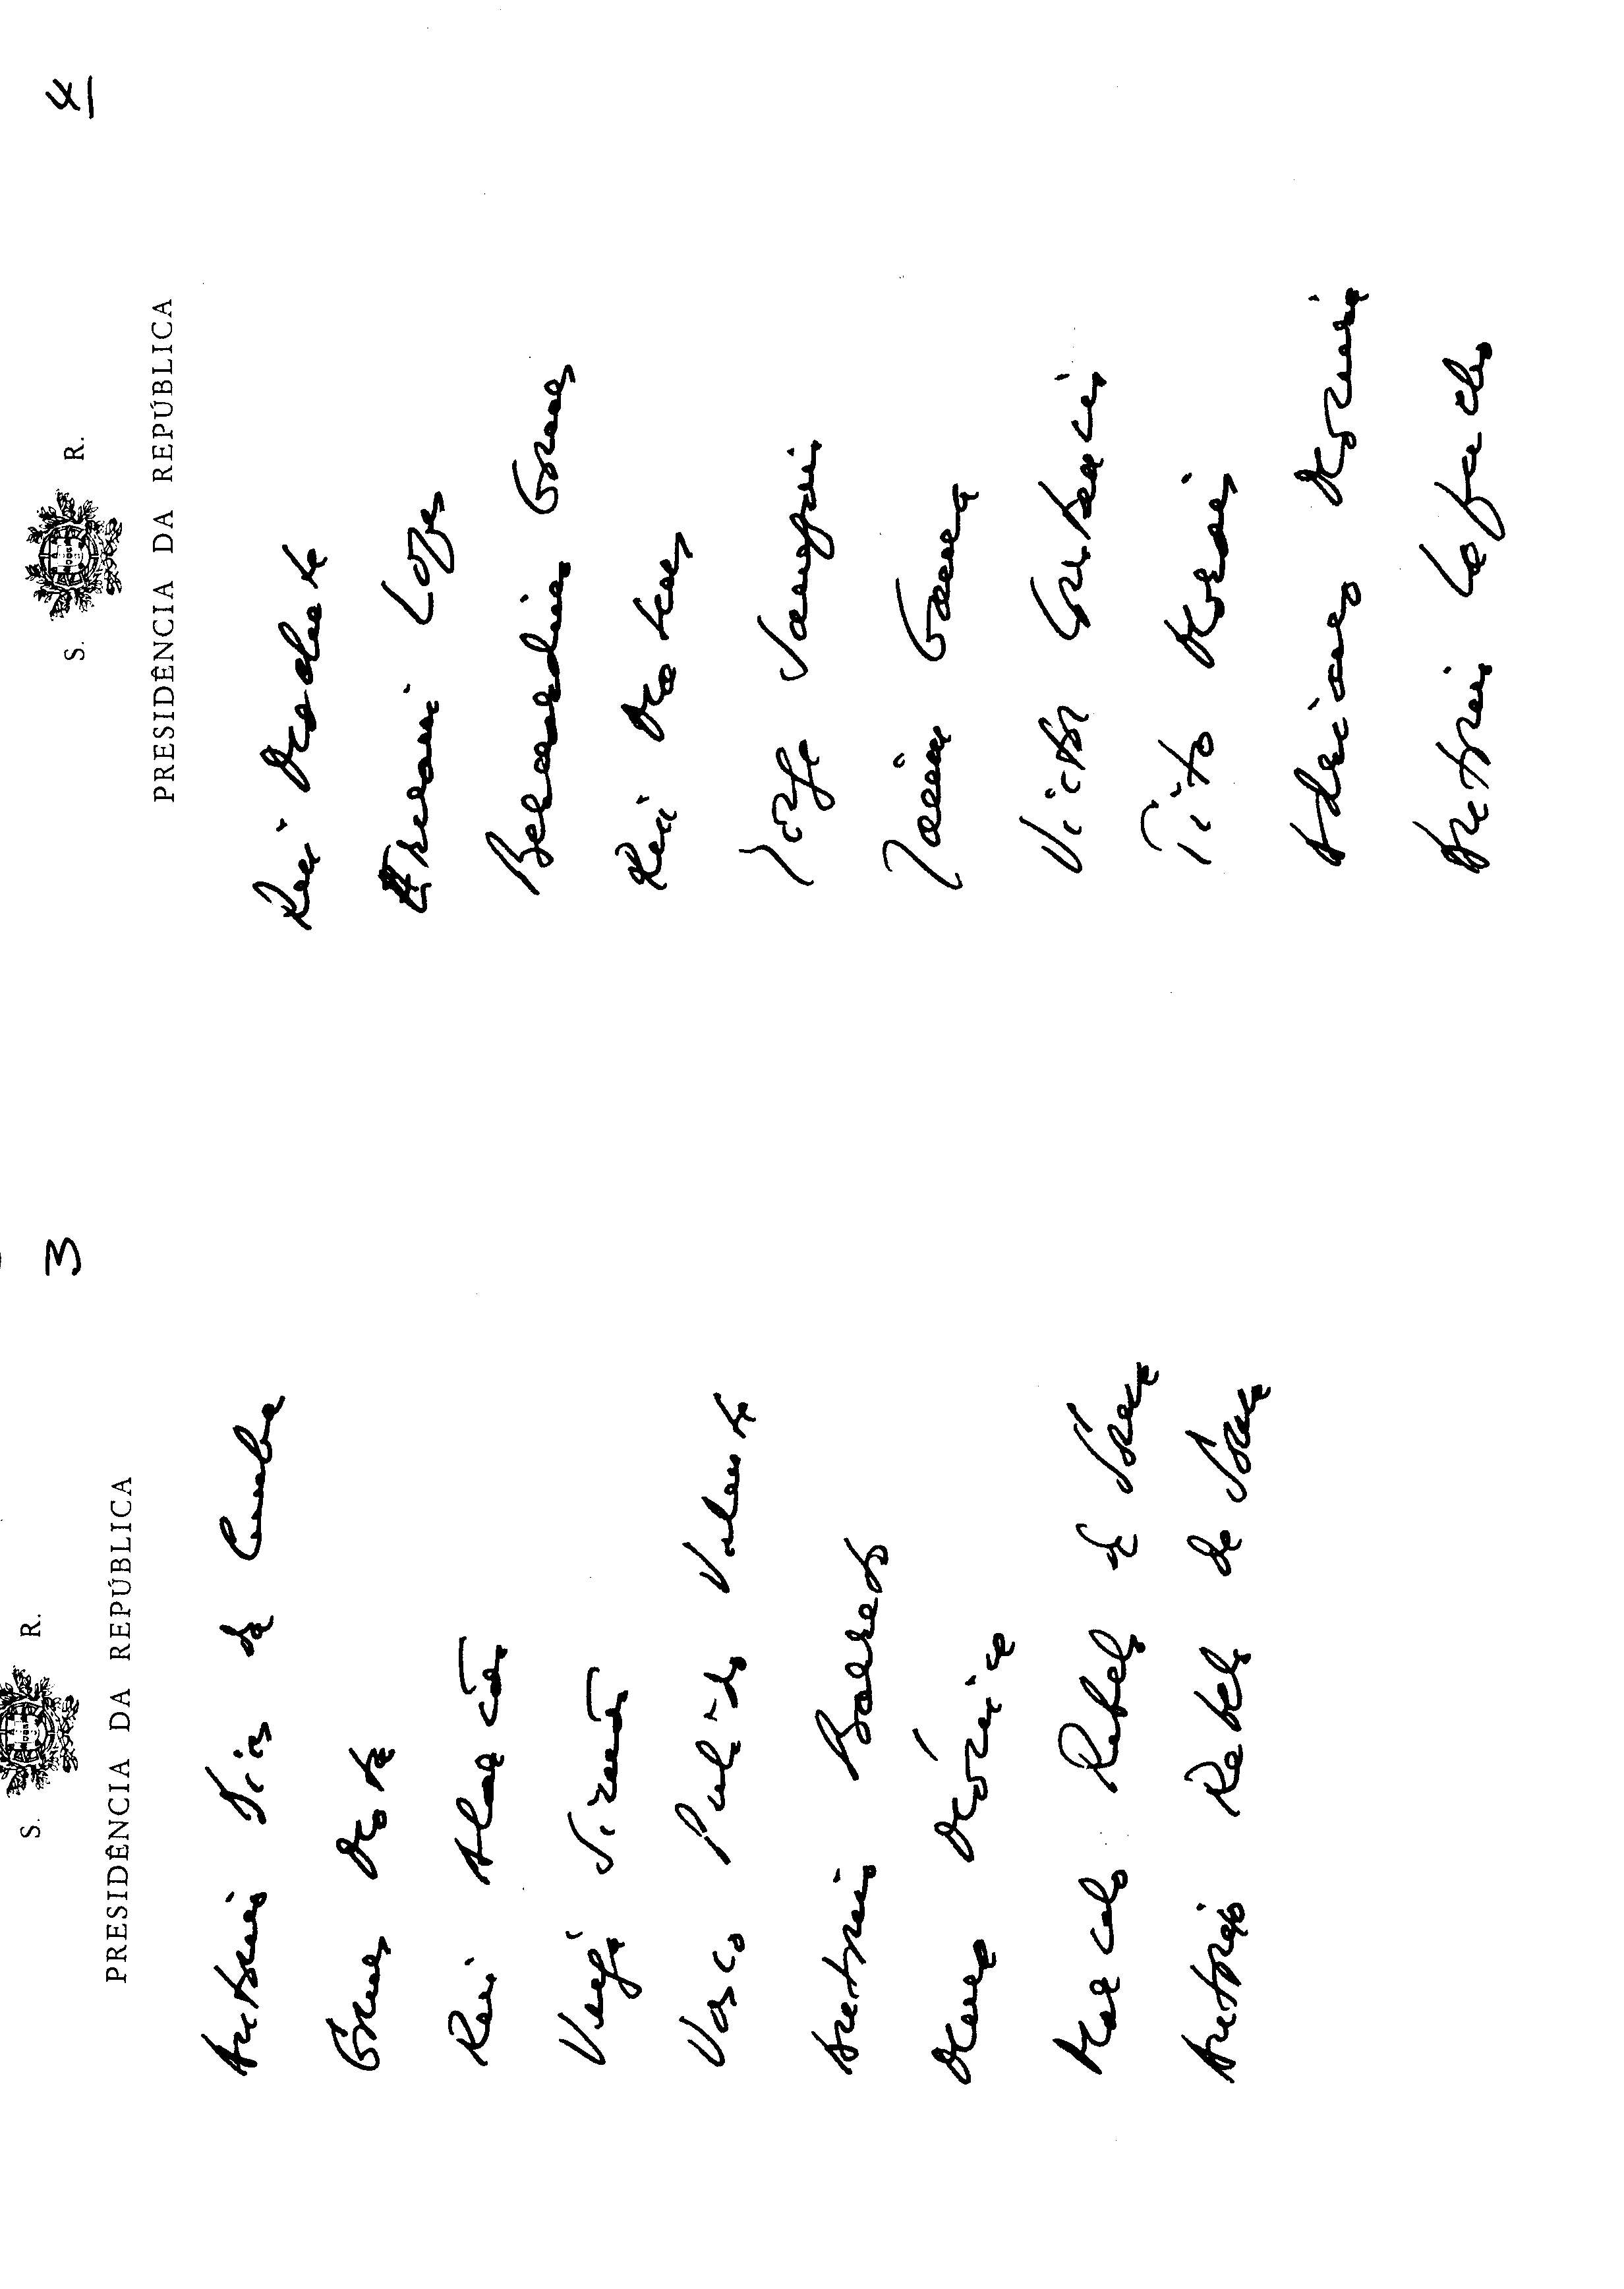 3
S. R.
PRESIDÊNCIA DA REPÚBLICA
António Dias da Cunha
Gomes Mota
Rui Alarcão
Veiga Simão
Vasco Pulido Valente
António Barreto
Mena Mónica
Marcelo Rebelo de Sousa
António Rebelo de Sousa
4
S. R.
PRESIDÊNCIA DA REPÚBLICA
Rui Machete
Ernani Lopes
Bernardino Gomes
Rui Mateus
Jorge Sampaio
Jaime Gama
Victor Constâncio
Tito Morais
Adriano Moreira
António